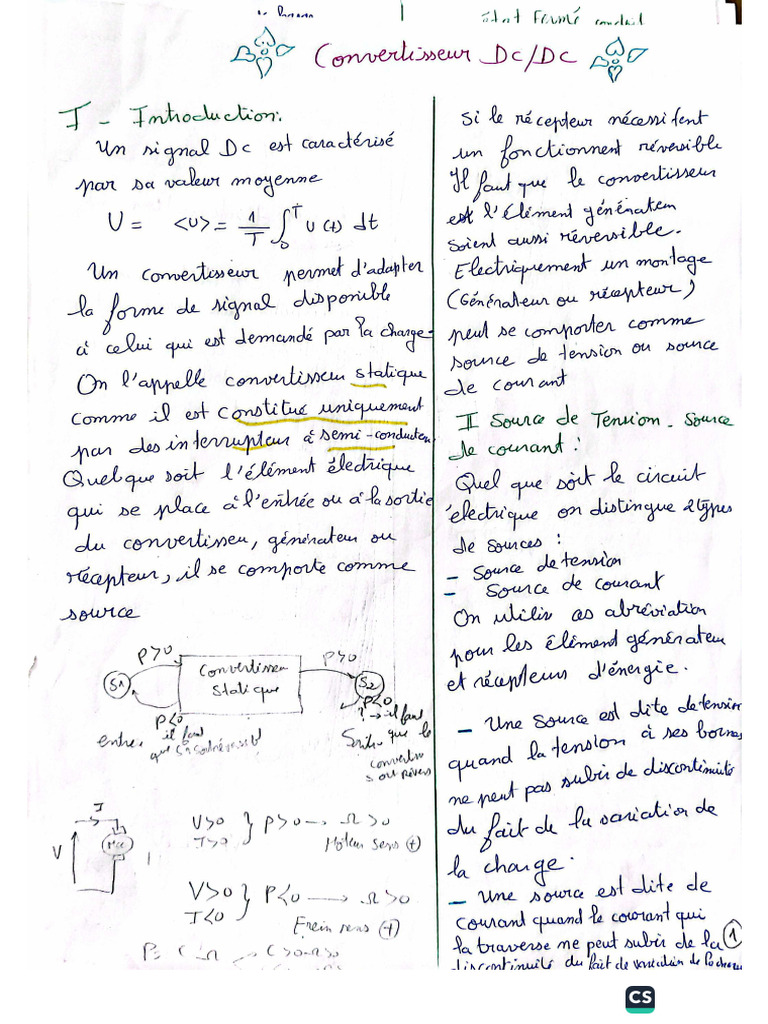 Etat Fermé conduit
Convertisseur Dc/Dc
I - Introduction:
Un signal Dc est caractérisé
par sa valeur moyenne
U = <u> = 1/T ∫₀ᵀ u(t) dt
Un convertisseur permet d'adapter
la forme de signal disponible
à celui qui est demandé par la charge
On l'appelle convertisseur statique
comme il est constitué uniquement
par des interrupteur à semi-conducteu
Quelque soit l'élément électrique
qui se place à l'entrée ou à la sortie
du convertisseu, générateu ou
récepteur, il se comporte comme
source
P>0
P>0
S1
Convertisseu
Statique
S2
P<0
P<0
? → il faut
entrée
il faut
Sortie
que le
que S1 soit
convertiss
V
I
V>0
I>0
} P>0 → Ω>0
Moteur sens (+)
V>0
I<0
} P<0 → Ω>0
Frein sens (+)
Si le récepteur nécessitent
un fonctionnent réversible
Il faut que le convertisseur
et l'élément générateu
soient aussi réversible.
Electriquement un montage
(Générateur ou récepteur)
peut se comporter comme
source de tension ou source
de courant
II Source de Tension - Source
de courant :
Quel que soit le circuit
électrique on distingue 2 types
de sources :
- Source de tension
- Source de courant
On utilis as abréviation
pour les élément générateu
et récepteurs d'énergie.
- Une source est dite de tension
quand la tension à ses bornes
ne peut pas subir de discontinuité
du fait de la variation de
la charge.
- Une source est dite de
courant quand le courant qui
la traverse ne peut subir de la
discontinuité du fait de variation de la charge
1
CS